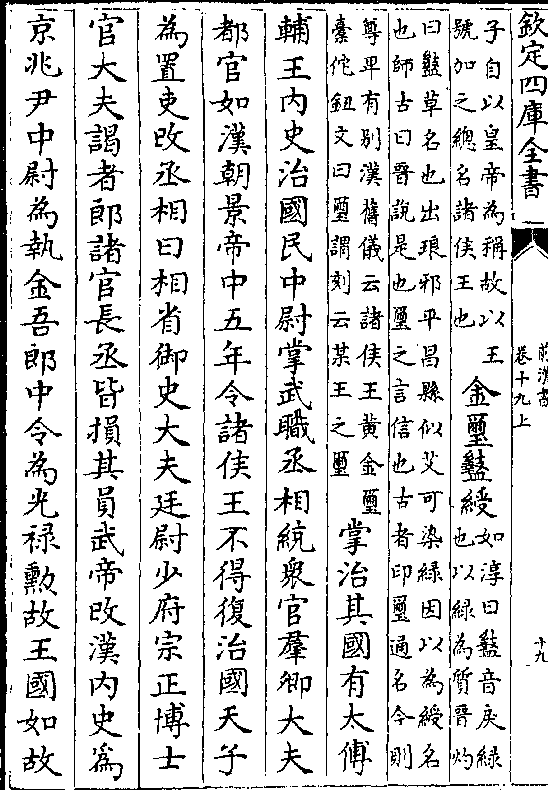 欽定四庫全書
前漢書
卷十九上
十九
子自以皇帝為稱故以王
號加之總名諸侯王也
金璽盭綬
如淳曰盭音戾綠
也以綠為質晉灼
曰盭草名也出琅邪平昌縣似艾可染綠因以為綬名
也師古曰晉說是也璽之言信也古者印璽通名今則
尊卑有别漢舊儀云諸侯王黄金璽
橐佗鈕文曰璽謂刻云某王之璽
掌治其國有太傅
輔王内史治國民中尉掌武職丞相統衆官羣卿大夫
都官如漢朝景帝中五年令諸侯王不得復治國天子
為置吏改丞相曰相省御史大夫廷尉少府宗正博士
官大夫謁者郎諸官長丞皆損其員武帝改漢内史為
京兆尹中尉為執金吾郎中令為光禄勲故王國如故